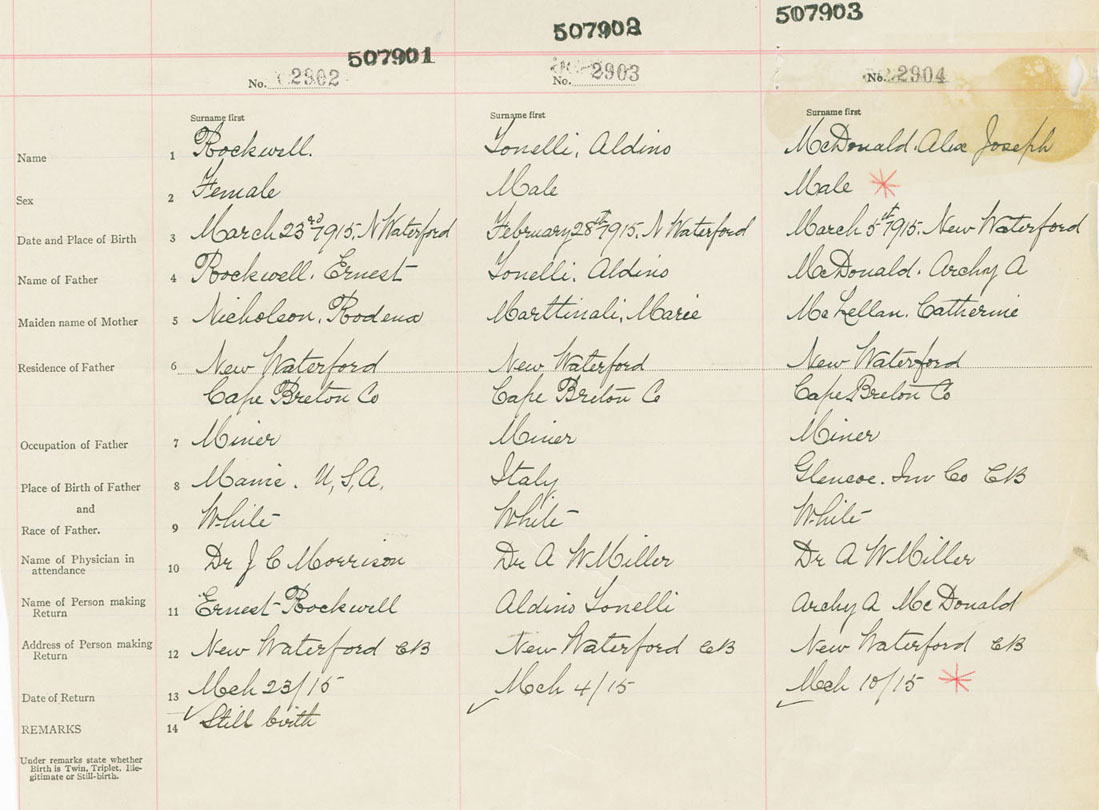 507901 507902 507903
No. 2902 No. 2903 No. 2904
Surname first Surname first Surname first
Name 1 Rockwell. Tonelli, Aldino McDonald. Alex Joseph
Sex 2 Female Male Male
Date and Place of Birth 3 March 23rd 1915. N Waterford February 28th 1915. N Waterford March 5th 1915. New Waterford
Name of Father 4 Rockwell. Ernest Tonelli. Aldino McDonald. Archy A
Maiden name of Mother 5 Nicholson. Rodena Marttinali, Marie McLellan. Catherine
Residence of Father 6 New Waterford New Waterford New Waterford
Cape Breton Co Cape Breton Co Cape Breton Co
Occupation of Father 7 Miner Miner Miner
Place of Birth of Father 8 Manie. U,S,A, Italy Glencoe. Inv Co CB
and
Race of Father. 9 White White White
Name of Physician in
attendance 10 Dr J C Morrison Dr A W Miller Dr A W Miller
Name of Person making
Return 11 Ernest Rockwell Aldino Tonelli Archy A McDonald
Address of Person making
Return 12 New Waterford CB New Waterford CB New Waterford CB
Date of Return 13 Mch 23/15 Mch 4/15 Mch 10/15
REMARKS 14 Still birth
Under remarks state whether
Birth is Twin, Triplet, Ille-
gitimate or Still-birth.